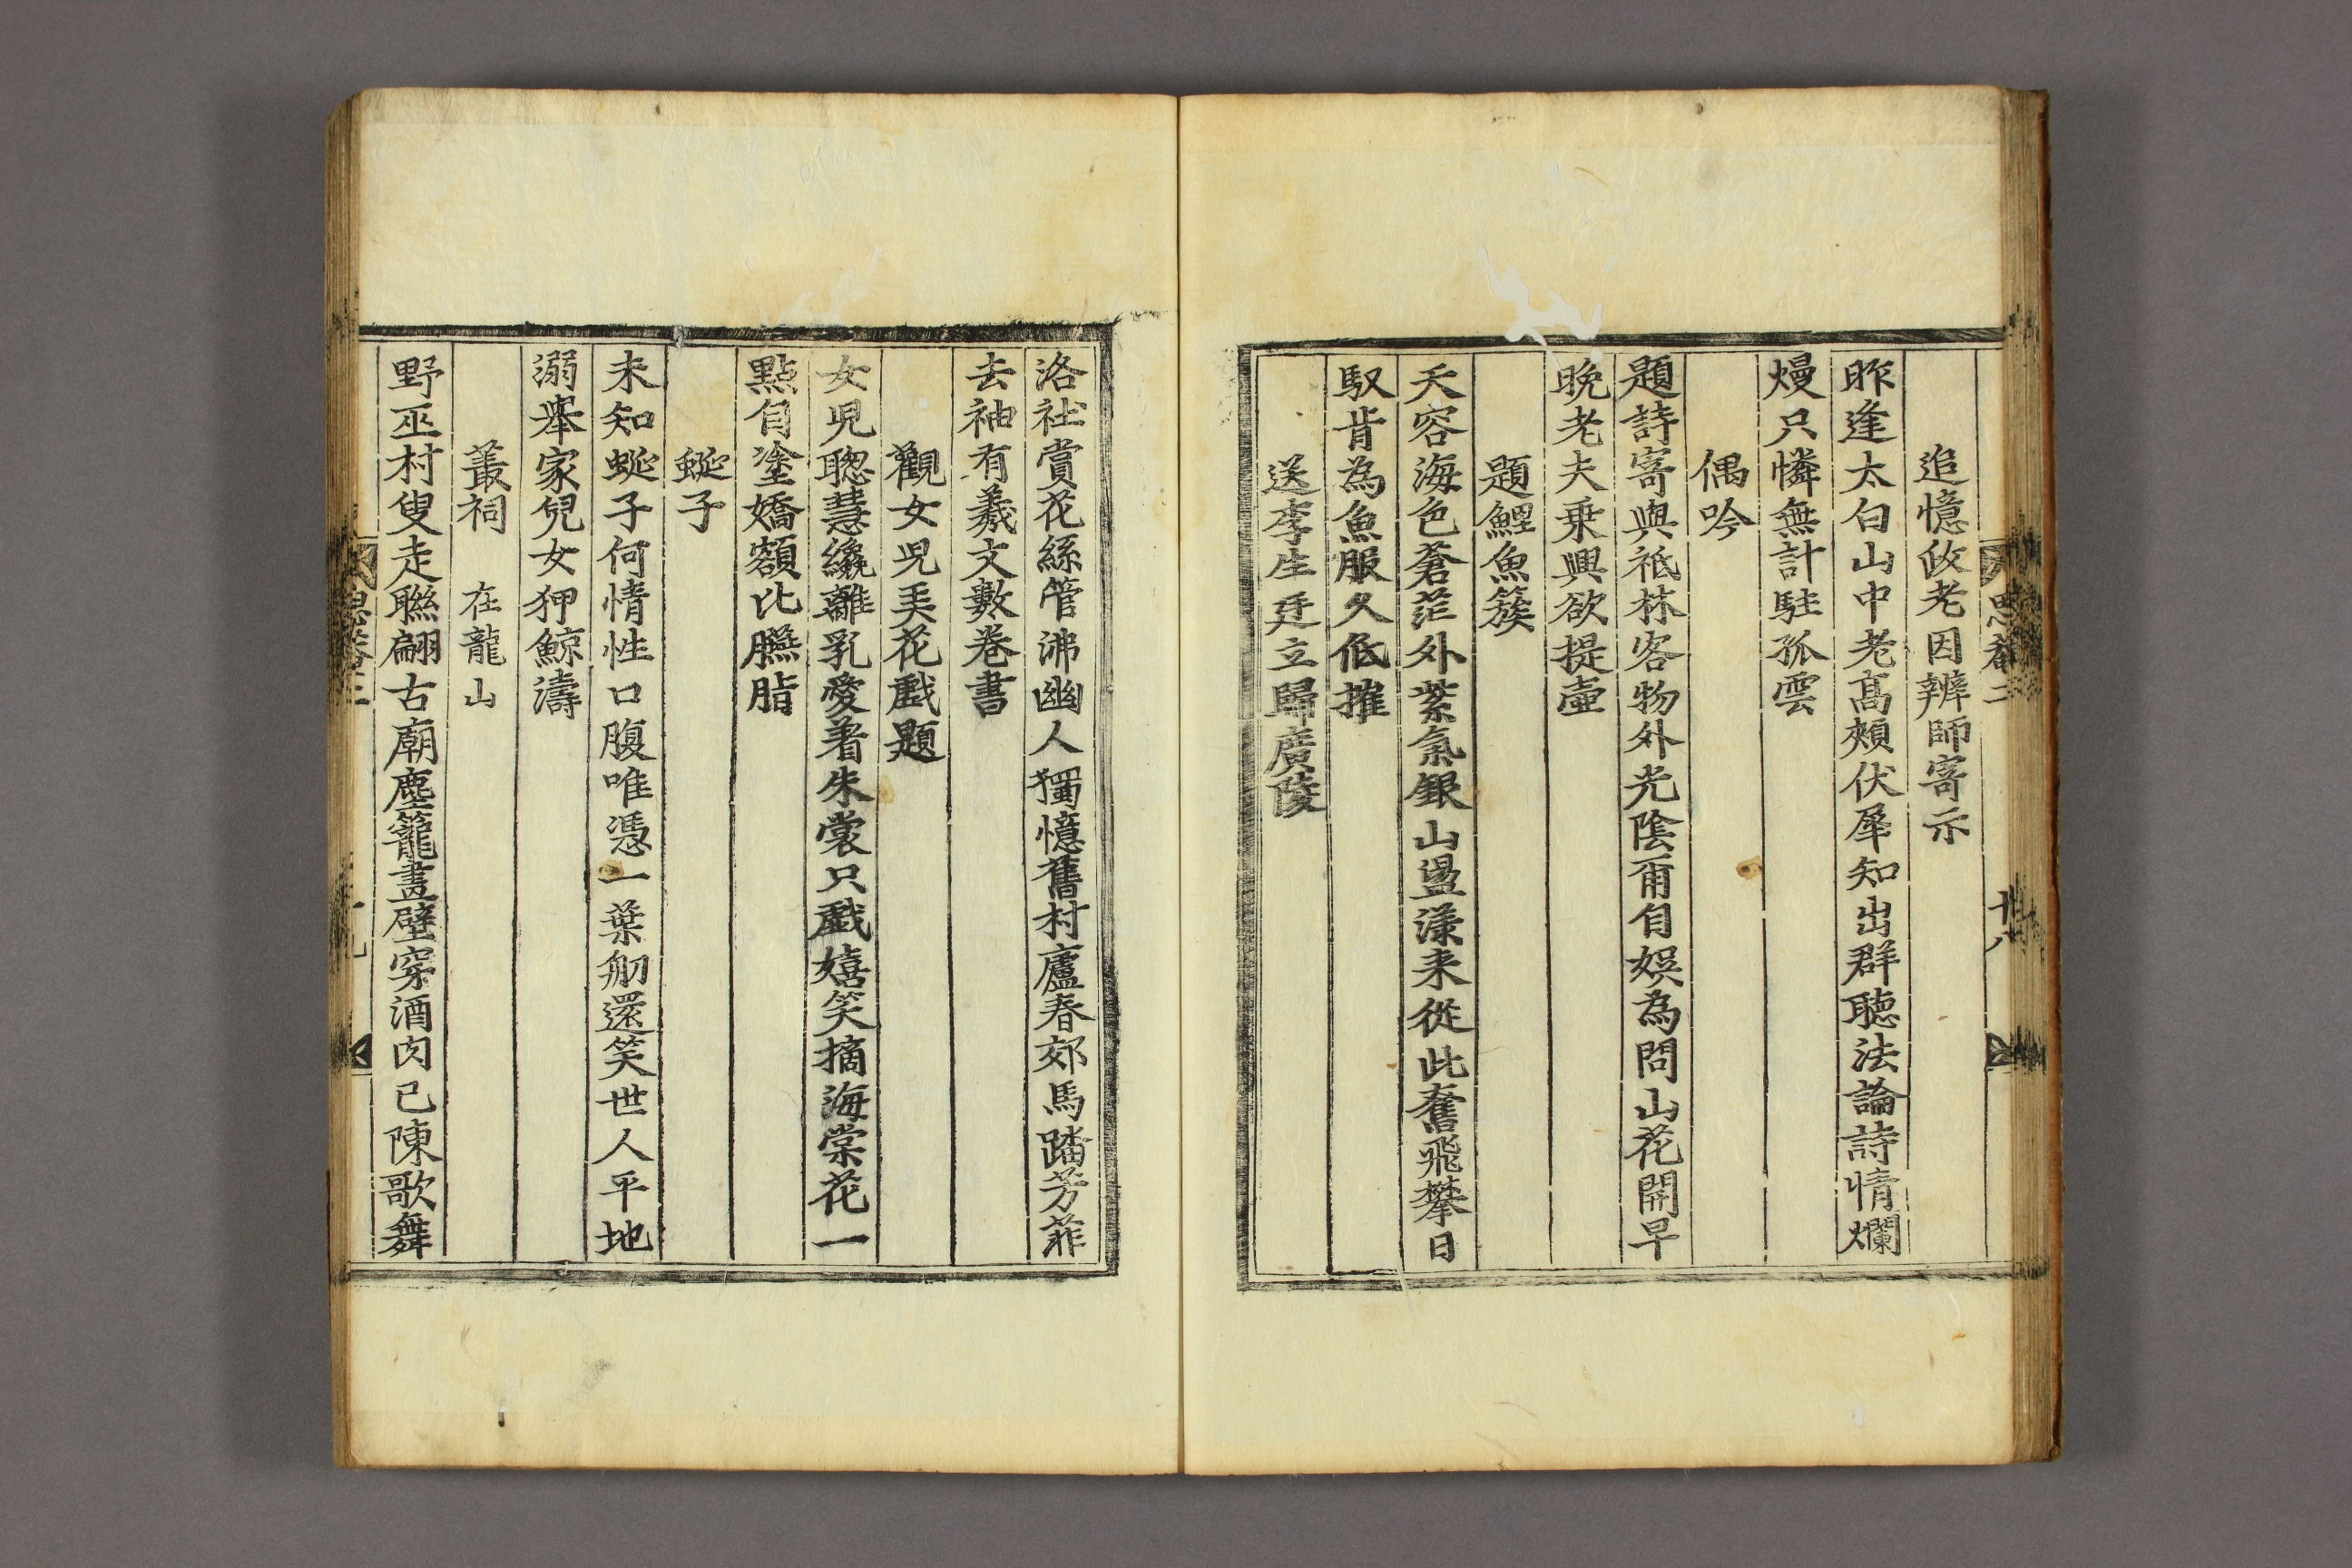 思菴二
十八
追憶攸老因辨師寄示
昨逢太白山中老高頰伏犀知出群聽法論詩情爛
熳只憐無計駐孤雲
偶吟
題詩寄與祗林客物外光陰甭自娛為問山花開早
晚老夫乗興欲提壷
題鯉魚簇
天容海色蒼茫外紫氣銀山盪漾来從此奮飛攀日
馭肯為魚服久低摧
送李生廷立歸廣陵
洛社賞花絲管沸幽人獨憶舊村廬春郊馬踏芳菲
去袖有羲文數卷書
觀女兒弄花戱題
女兒聦慧纔離乳愛着朱裳只戱嬉笑摘海棠花一
點自塗嬌額比臙脂
蜒子
未知蜒子何情性口腹唯憑一葉舠還笑世人平地
溺举家兒女狎鯨濤
叢祠 在龍山
野巫村叟走聯翩古廟塵籠畫壁穿酒肉已陳歌舞